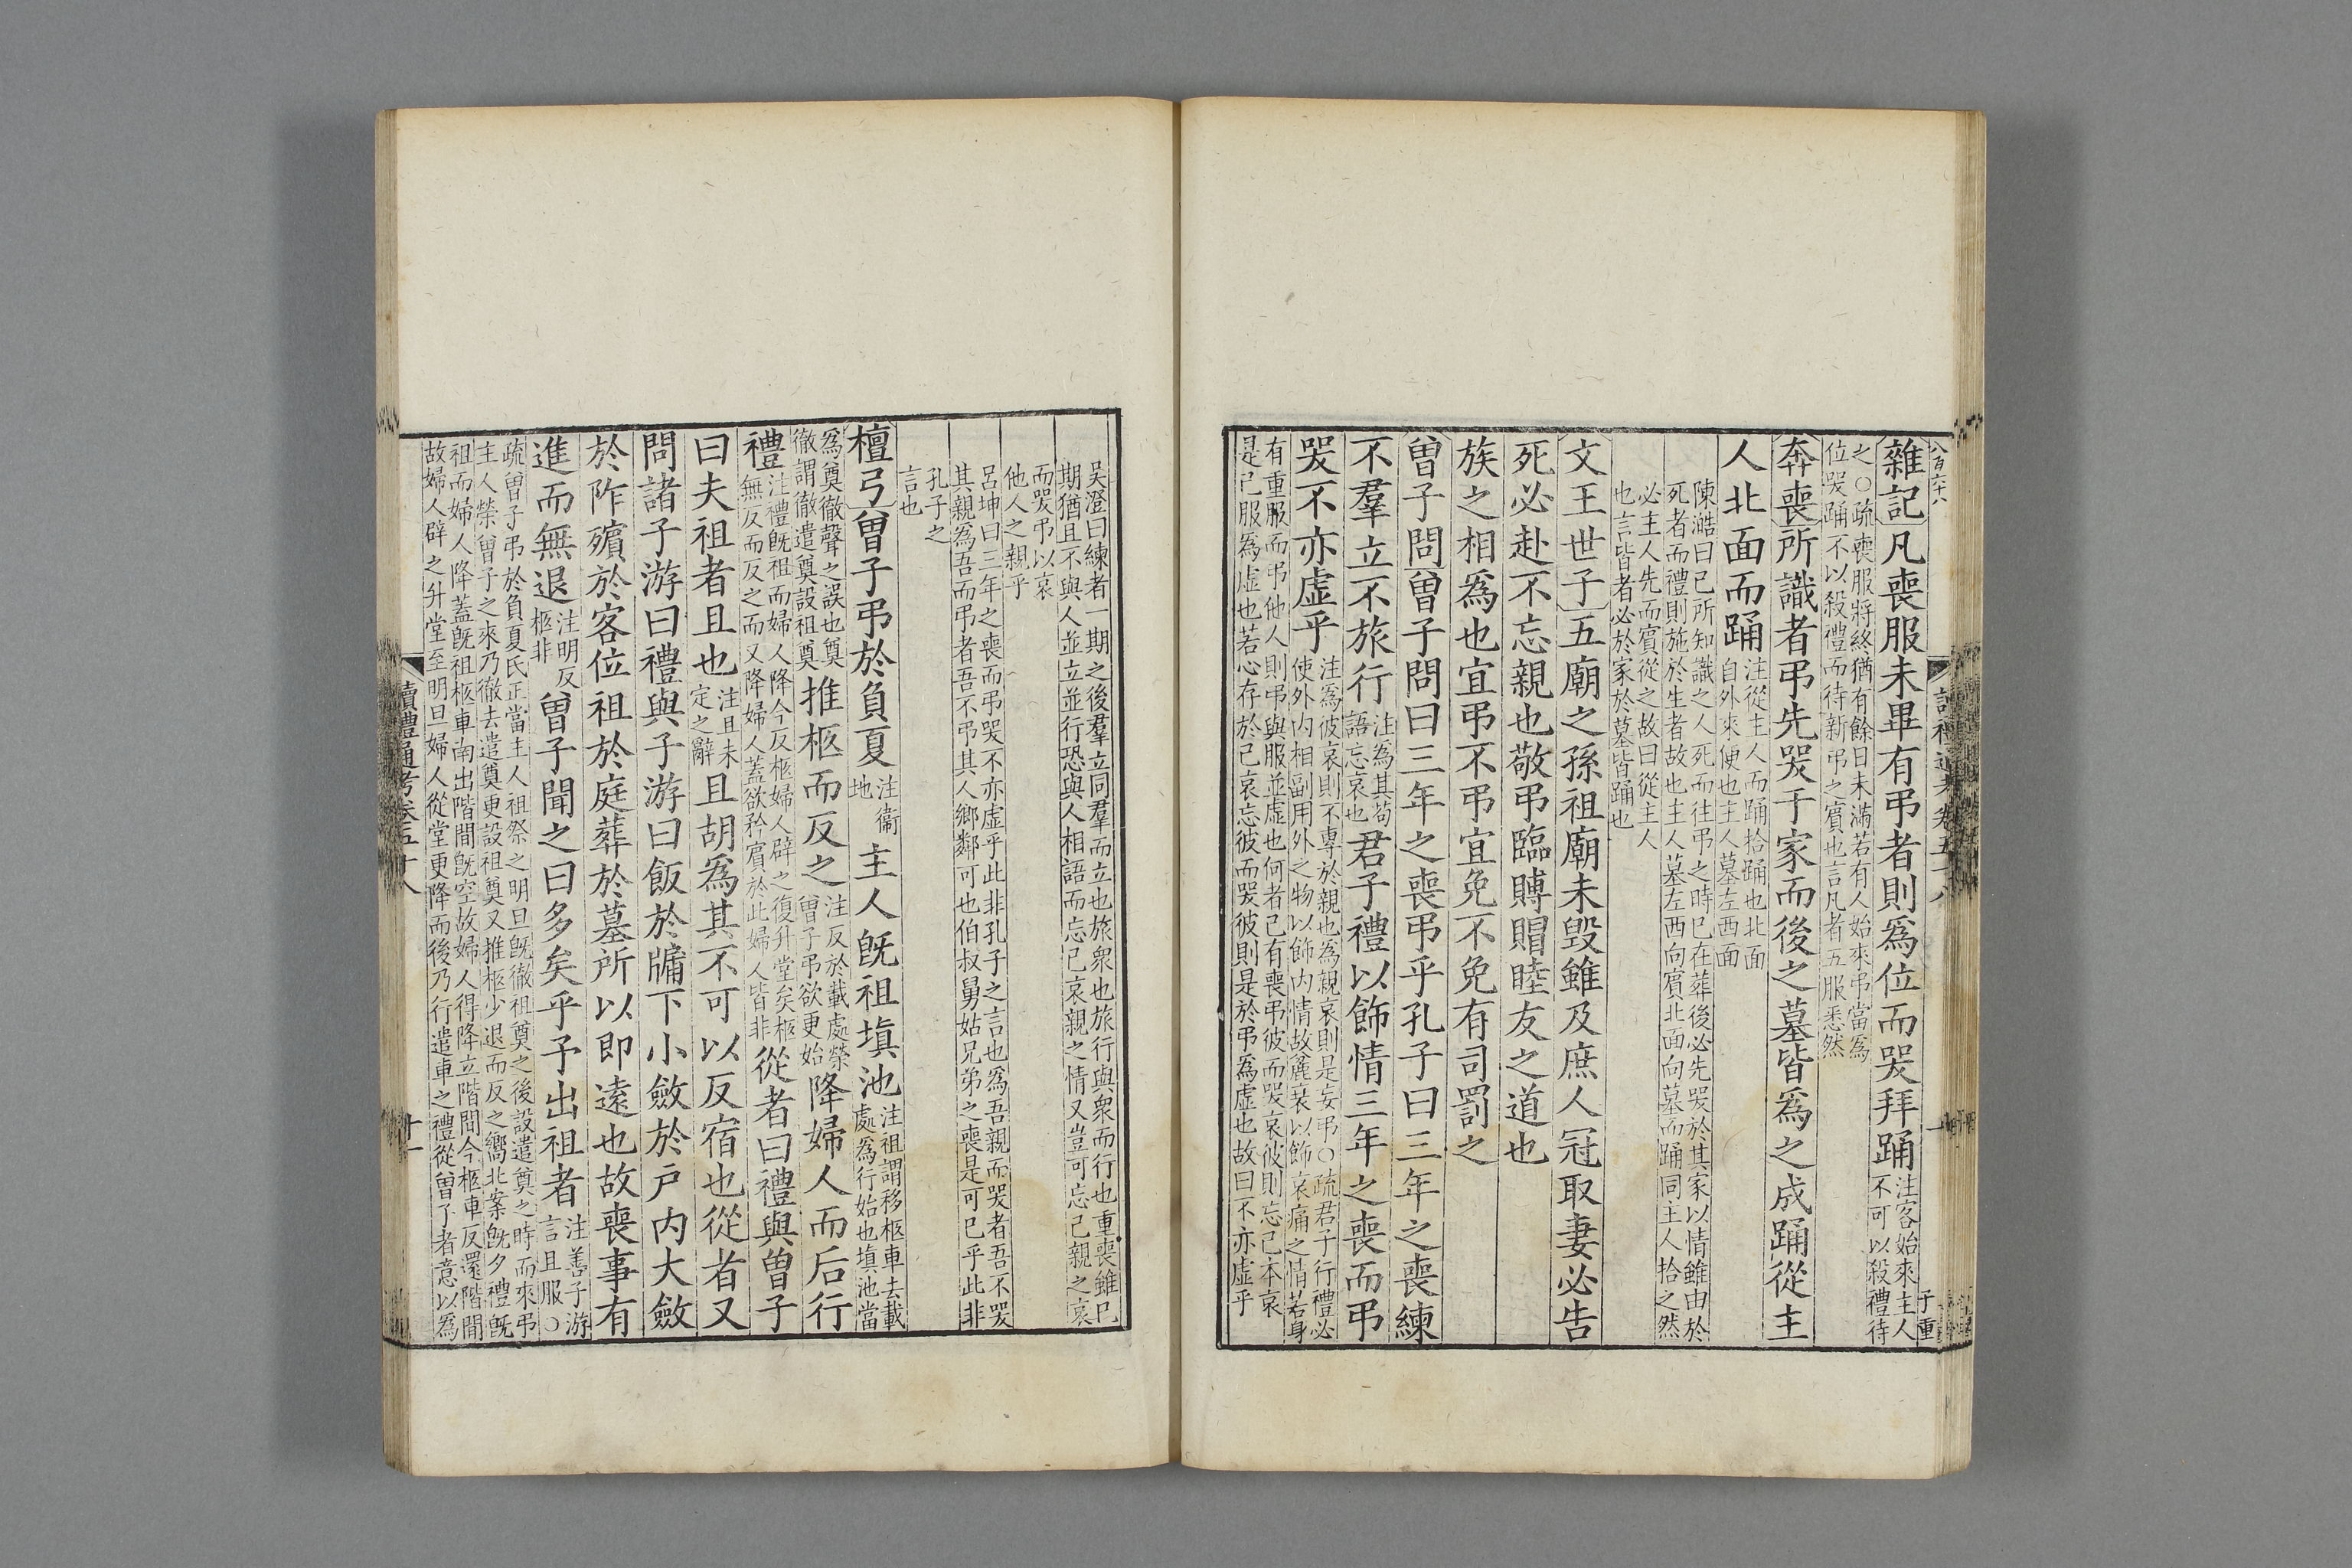 八百六十八
讀禮通考卷五十八
雜記凡喪服未畢有弔者則爲位而哭拜踊注客始來主人不可以殺禮待
之○疏喪服將終猶有餘日未滿若有人始來弔當爲
位哭踊不以殺禮而待新弔之賓也言凡者五服悉然
奔喪所識者弔先哭于家而後之墓皆爲之成踊從主
人北面而踊注從主人而踊拾踊也北面自外來便也主人墓左西面
陳澔曰已所知識之人死而往弔之時已在葬後必先哭於其家以情雖由於
死者而禮則施於生者故也主人墓左西向賓北面向墓而踊同主人拾之然
必主人先而賓從之故曰從主人
也言皆者必於家於墓皆踊也
文王世子五廟之孫祖廟未毀雖及庶人冠取妻必告
死必赴不忘親也敬弔臨賻賵睦友之道也
族之相爲也宜弔不弔宜免不免有司罰之
曾子問曾子問曰三年之喪弔乎孔子曰三年之喪練
不羣立不旅行注爲其苟語忘哀也君子禮以飾情三年之喪而弔
哭不亦虛乎注爲彼哀則不專於親也為親哀則是妄弔○疏君子行禮必使外內相副用外之物以飾內情故麄衰以飾哀痛之情若身
有重服而弔他人則弔與服並虛也何者已有喪弔彼而哭哀彼則忘己本哀
是已服為虛也若心存於已哀忘彼而哭彼則是於弔爲虛也故曰不亦虛乎
吳澄曰練者一期之後羣立同羣而立也旅衆也旅行與衆而行也重喪雖已
期猶且不與人並立並行恐與人相語而忘己哀親之情又豈可忘己親之哀
而哭弔以哀
他人之親乎
呂坤曰三年之喪而弔哭不亦虛乎此非孔子之言也爲吾親而哭者吾不哭
其親爲吾而弔者吾不弔其人鄉鄰可也伯叔舅姑兄弟之喪是可已乎此非
孔子之
言也
檀弓曾子弔於負夏注衞地主人旣祖填池注祖謂移柩車去載處爲行始也填池當
爲奠徹聲之誤也奠徹謂徹遣奠設祖奠推柩而反之注反於載處榮曾子弔欲更始降婦人而后行
禮注禮旣祖而婦人降今反柩婦人辟之復升堂矣柩無反而反之而又降婦人蓋欲矜賓於此婦人皆非從者曰禮與曾子
曰夫祖者且也注且未定之辭且胡爲其不可以反宿也從者又
問諸子游曰禮與子游曰飯於牖下小斂於戶内大斂
於阼殯於客位祖於庭葬於墓所以即遠也故喪事有
進而無退注明反柩非曾子聞之曰多矣乎予出祖者注善子游言且服○
疏曾子弔於負夏氏正當主人祖祭之明旦旣徹祖奠之後設遣奠之時而來弔
主人榮曾子之來乃徹去遣奠更設祖奠又推柩少退而反之嚮北案旣夕禮旣
祖而婦人降蓋旣祖柩車南出階間旣空故婦人得降立階間今柩車反還階間
故婦人辟之升堂至明旦婦人從堂更降而後乃行遣車之禮從曾子者意以爲
讀禮通考卷五十八
十一